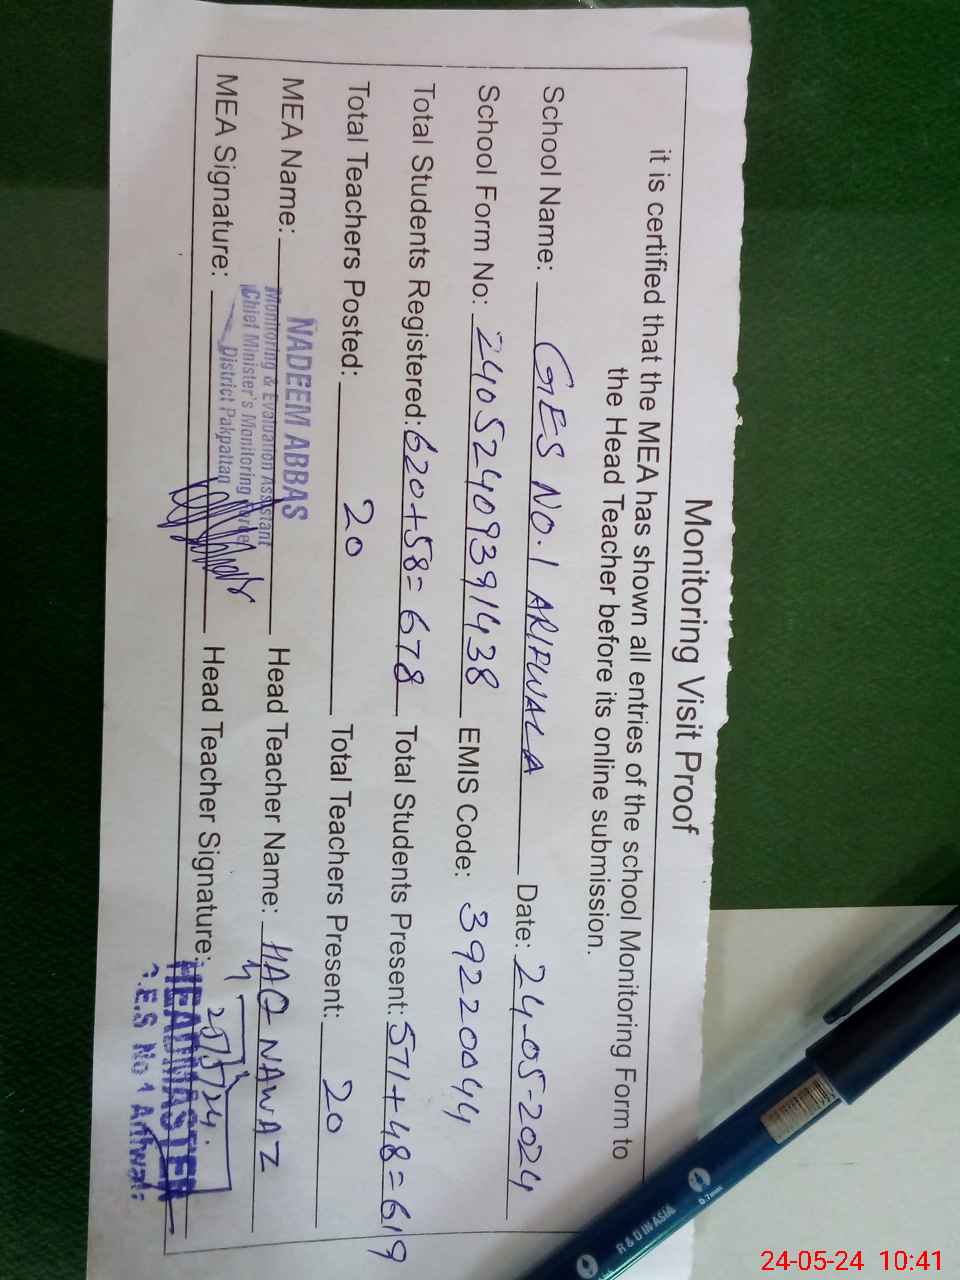 Monitoring Visit Proof
it is certified that the MEA has shown all entries of the school Monitoring Form to
the Head Teacher before its online submission.
School Name: GES NO.1 ARIFWALA Date: 24-05-2024
School Form No: 24052409391438 EMIS Code: 39220044
Total Students Registered: 620+58=678 Total Students Present: 571+48=619
Total Teachers Posted: 20 Total Teachers Present: 20
MEA Name: Head Teacher Name: HAQ NAWAZ
NADEEM ABBAS
Monitoring & Evaluation Assistant
Chief Minister's Monitoring
District Pakpattan
MEA Signature: Head Teacher Signature:
HEADMASTER
G.E.S No 1 Arifwala
R & D IN ASIA
0.7mm
24-05-24 10:41